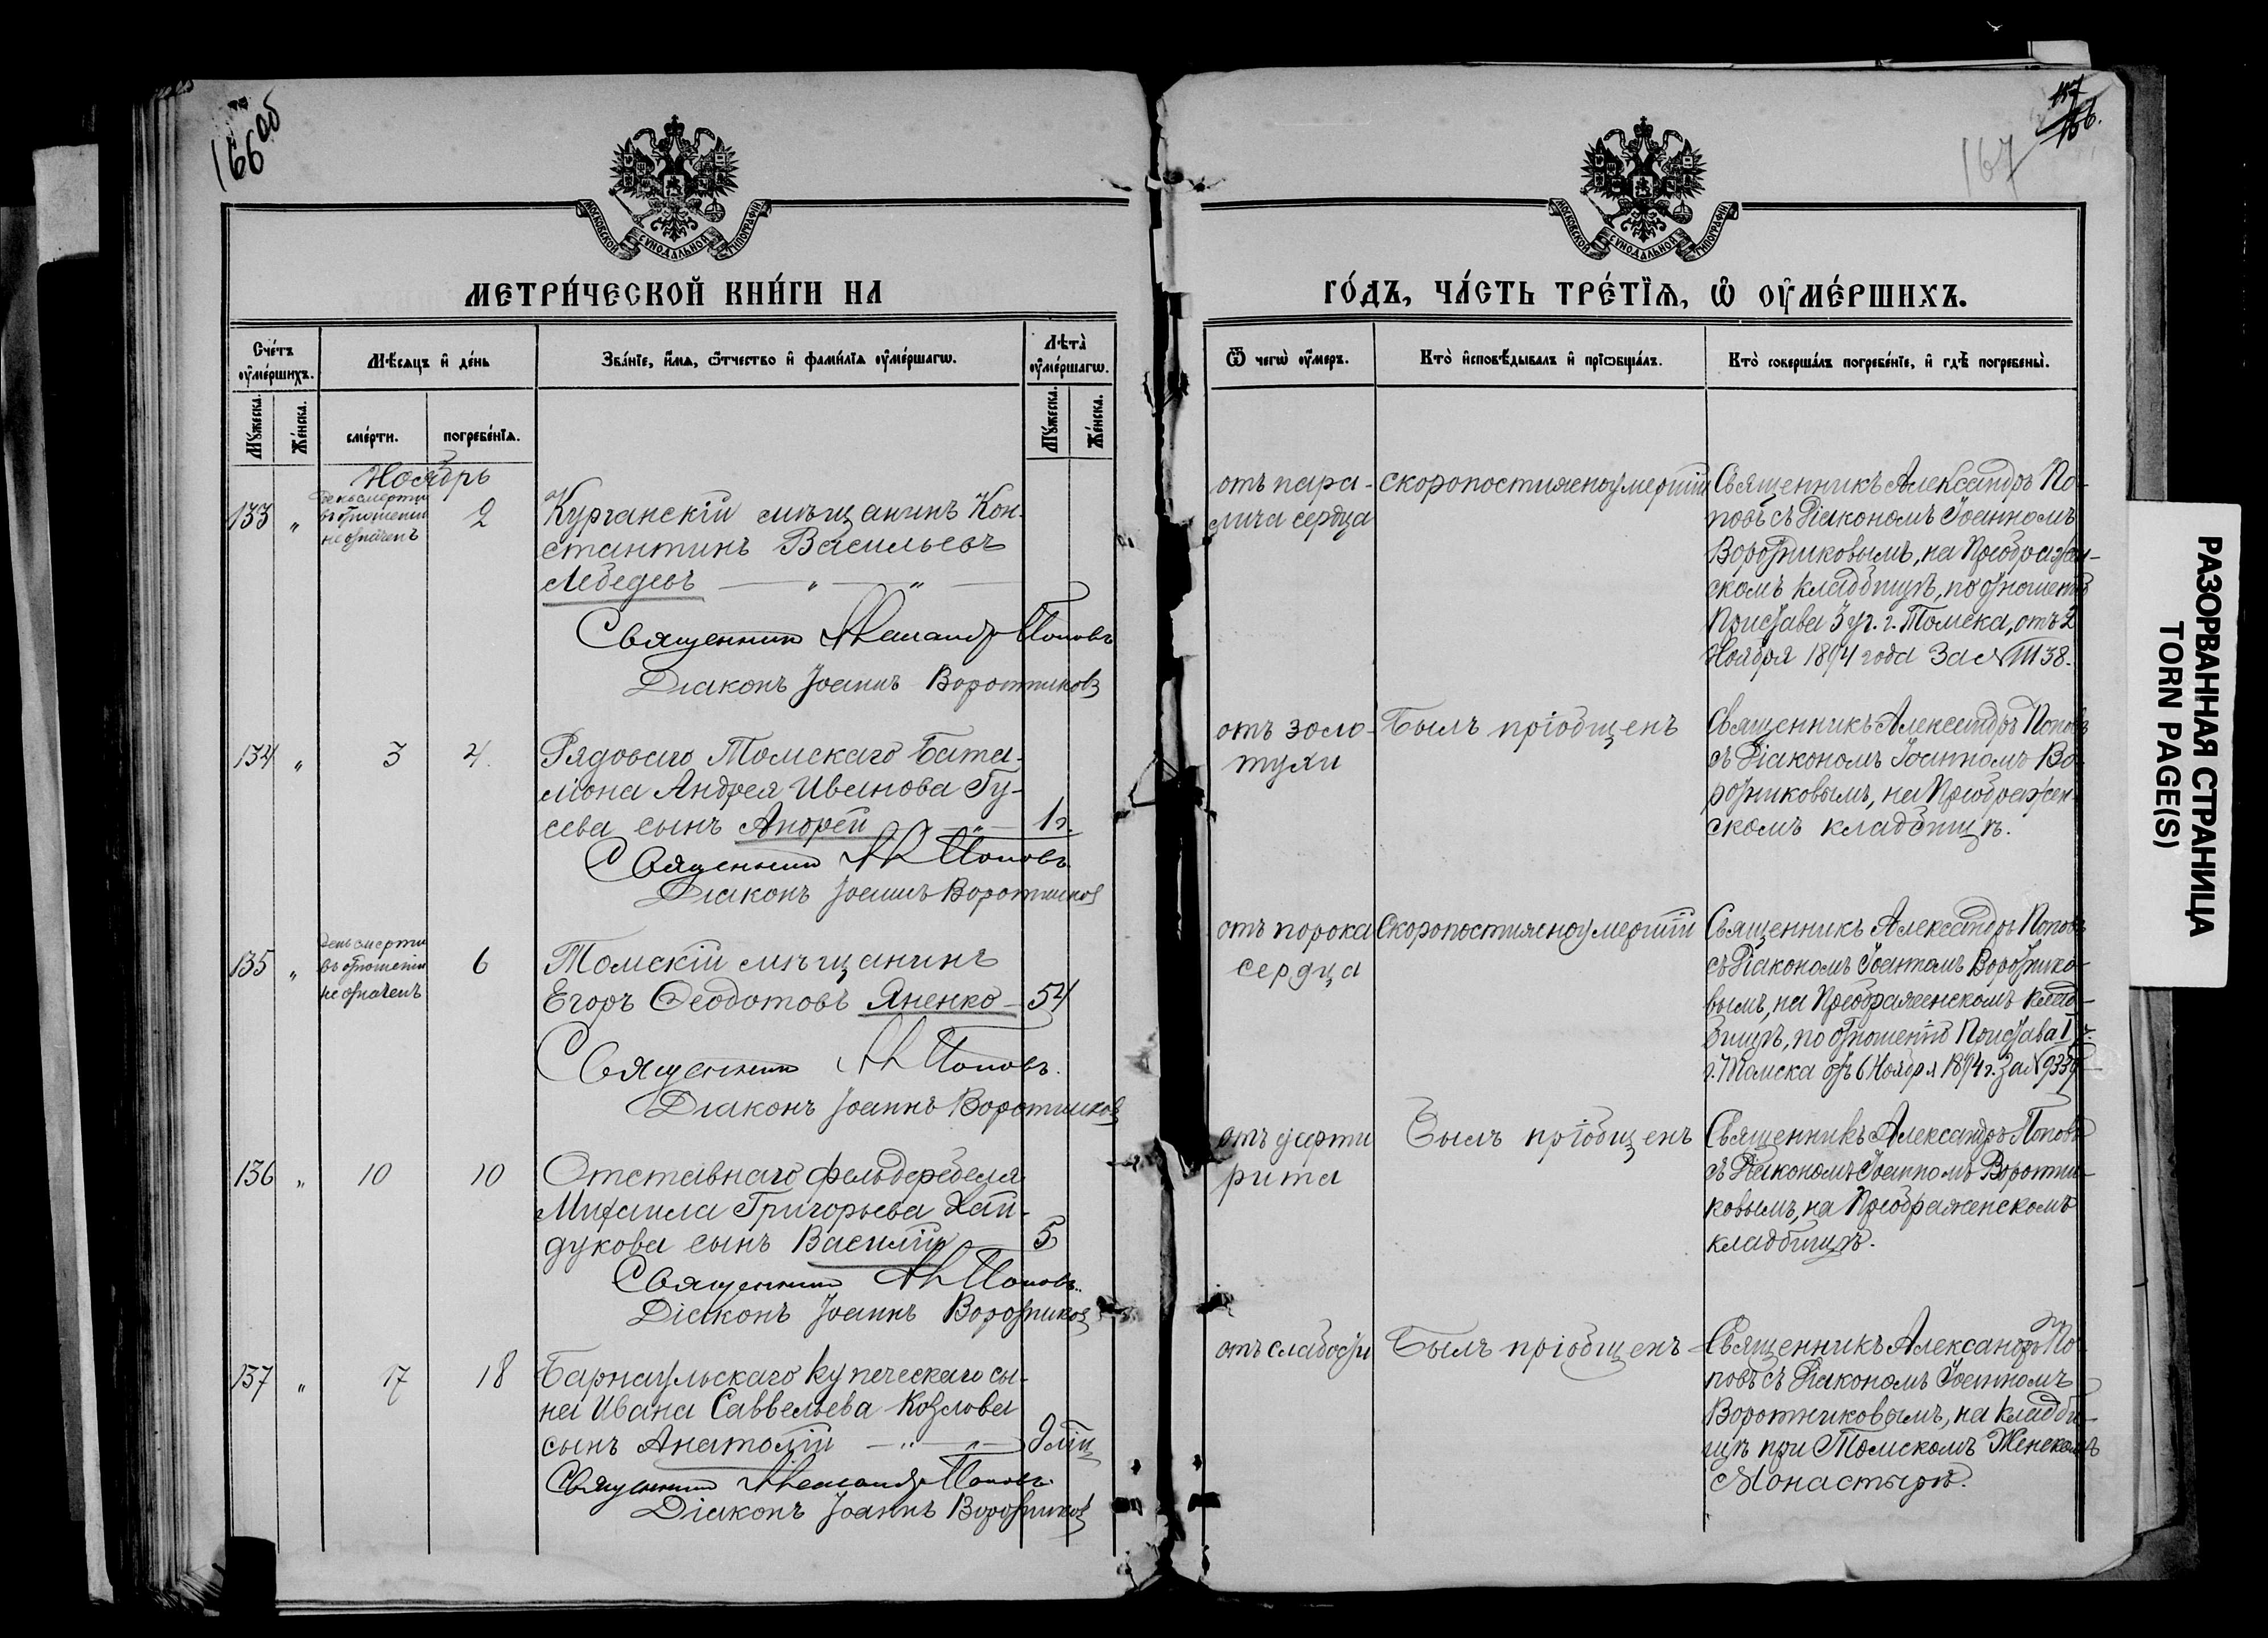 166 об
МОСКОВСКОЙ СУНОДАЛЬНОЙ ТИПОГРАФІИ
МЕТРИ́ЧЕСКОЙ КНИ́ГИ НА
Сче́тъ ᲂу҆ме́ршихъ.
Мѣ́сяцъ и҆ де́нь
Зва́нїе, и҆́мѧ, ѻ҆́тчество и҆ фами́лїѧ ᲂу҆ме́ршагѡ.
Лѣта̀ ᲂу҆ме́ршагѡ.
Му́жеска.
Же́нска.
сме́рти.
погребе́нїѧ.
Му́жеска.
Же́нска.
Ноябрь
133 " день смерти въ отношеніи не означенъ 2
Курганскій мѣщанинъ Кон-
стантинъ Васильевъ
Лебедевъ — " — " —
Священникъ Александръ Поповъ
Діаконъ Іоаннъ Воротниковъ
134 " 3 4.
Рядоваго Томскаго Бата-
ліона Андрея Иванова Гу-
сева сынъ Андрей — " — 1 г.
Священникъ Ал Поповъ
Діаконъ Іоаннъ Воротниковъ
135 " день смерти въ отношеніи не означенъ 6
Томскій мѣщанинъ
Егоръ Ѳеодотовъ Яненко — 54
Священникъ Ал Поповъ.
Діаконъ Іоаннъ Воротниковъ
136 " 10 10
Отставнаго фельдфебеля
Михаила Григорьева Хай-
дукова сынъ Василій — 5
Священникъ Ал Поповъ.
Діаконъ Іоаннъ Воротниковъ
137 " 17 18
Барнаульскаго купеческаго сы-
на Ивана Саввельева Козлова
сынъ Анатолій — " — " — 9 мѣц
Священникъ Александръ Поповъ
Діаконъ Іоаннъ Воротниковъ
167
166.
МОСКОВСКОЙ СУНОДАЛЬНОЙ ТИПОГРАФІИ
ГО́ДЪ, ЧА́СТЬ ТРЕ́ТЇѦ, Ѡ҆ ᲂУ҆МЕ́РШИХЪ.
Ѿ чегѡ̀ ᲂу҆́меръ.
Кто̀ и҆сповѣ́дывалъ и҆ прїѡбща́лъ.
Кто̀ соверша́лъ погребе́нїе, и҆ гдѣ̀ погребены̀.
отъ пара-
лича сердца
скоропостижноумершій
Священникъ Александръ По-
повъ съ Діакономъ Іоанномъ
Воротниковымъ, на Преображен-
скомъ кладбищѣ, по отношенію
Пристава 3 уч. г. Томска, отъ 2
Ноября 1894 года за №
отъ золо-
тухи
Былъ пріобщенъ
Священникъ Александръ Поповъ
съ Діакономъ Іоанномъ Во-
ротниковымъ, на Преображен-
скомъ кладбищѣ.
отъ порока
сердца
Скоропостижноумершій
Священникъ Александръ Поповъ
съ Діакономъ Іоанномъ Воротнико-
вымъ, на Преображенскомъ клад-
бищѣ, по отношенію Пристава
г. Томска отъ 6 Ноября 1894 г. за №
отъ
рита
Былъ пріобщенъ
Священникъ Александръ Поповъ
съ Діакономъ Іоанномъ Воротни-
ковымъ, на Преображенскомъ
кладбищѣ.
отъ слабости
Былъ пріобщенъ
Священникъ Александръ По-
повъ съ Діакономъ Іоанномъ
Воротниковымъ, на кладби-
щѣ при Томскомъ Женскомъ
Монастырѣ.
РАЗОРВАННАЯ СТРАНИЦА
TORN PAGE(S)